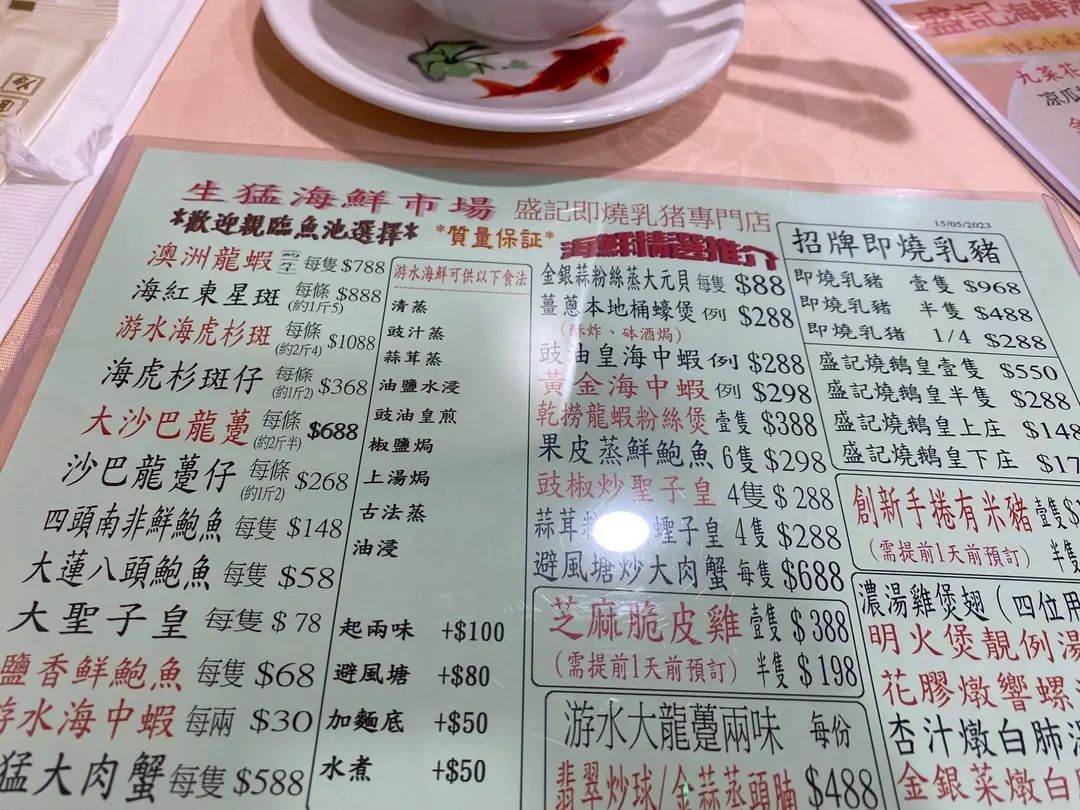 生猛海鮮市場 盛記即燒乳猪專門店
*歡迎親臨魚池選擇* *質量保証*
15/05/2023
澳洲龍蝦 每隻 $788
海紅東星斑 每條 (約1斤5) $888
游水海虎杉斑 每條 (約2斤4) $1088
海虎杉斑仔 每條 (約1斤2) $368
大沙巴龍躉 每條 (約2斤半) $688
沙巴龍躉仔 每條 (約1斤2) $268
四頭南非鮮鮑魚 每隻 $148
大蓮八頭鮑魚 每隻 $58
大聖子皇 每隻 $78
鹽香鮮鮑魚 每隻 $68
游水海中蝦 每兩 $30
猛大肉蟹 每隻 $588
游水海鮮可供以下食法
清蒸
豉汁蒸
蒜茸蒸
油鹽水浸
豉油皇煎
椒鹽焗
上湯焗
古法蒸
油浸
起兩味 +$100
避風塘 +$80
加麵底 +$50
水煮 +$50
海鮮精選推介
金銀蒜粉絲蒸大元貝 每隻 $88
薑蔥本地桶蠔煲 例 $288
(酥炸、砵酒焗)
豉油皇海中蝦 例 $288
黃金海中蝦 例 $298
乾撈龍蝦粉絲煲 壹隻 $388
果皮蒸鮮鮑魚 6隻 $298
豉椒炒聖子皇 4隻 $288
蒜茸粉 蟶子皇 4隻 $288
避風塘炒大肉蟹 每隻 $688
芝麻脆皮雞 壹隻 $388
(需提前1天前預訂) 半隻 $198
游水大龍躉兩味 每份
翡翠炒球/金蒜蒸頭腩 $488
招牌即燒乳豬
即燒乳豬 壹隻 $968
即燒乳豬 半隻 $488
即燒乳豬 1/4 $288
盛記燒鵝皇壹隻 $550
盛記燒鵝皇半隻 $288
盛記燒鵝皇上庄 $148
盛記燒鵝皇下庄 $17
創新手捲有米豬 壹隻$
(需提前1天前預訂) 半隻
濃湯雞煲翅 (四位用
明火煲靚例湯
花膠燉響螺
杏汁燉白肺湯
金銀菜燉白
盛記海鮮
特式小菜
九菜花
涼瓜
金